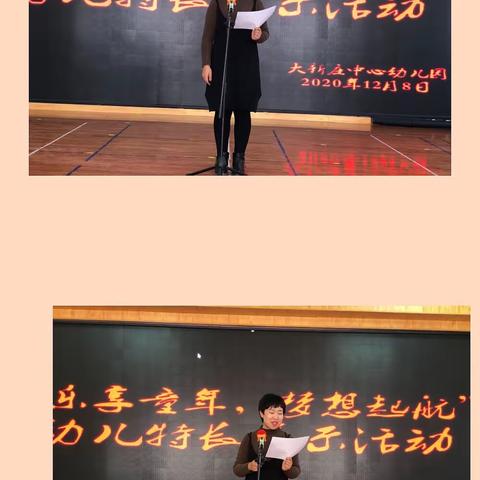 幼儿特长 示活动
大新庄中心幼儿园
2020年12月8日
乐享童年，梦想起航”
幼儿特长 示活动